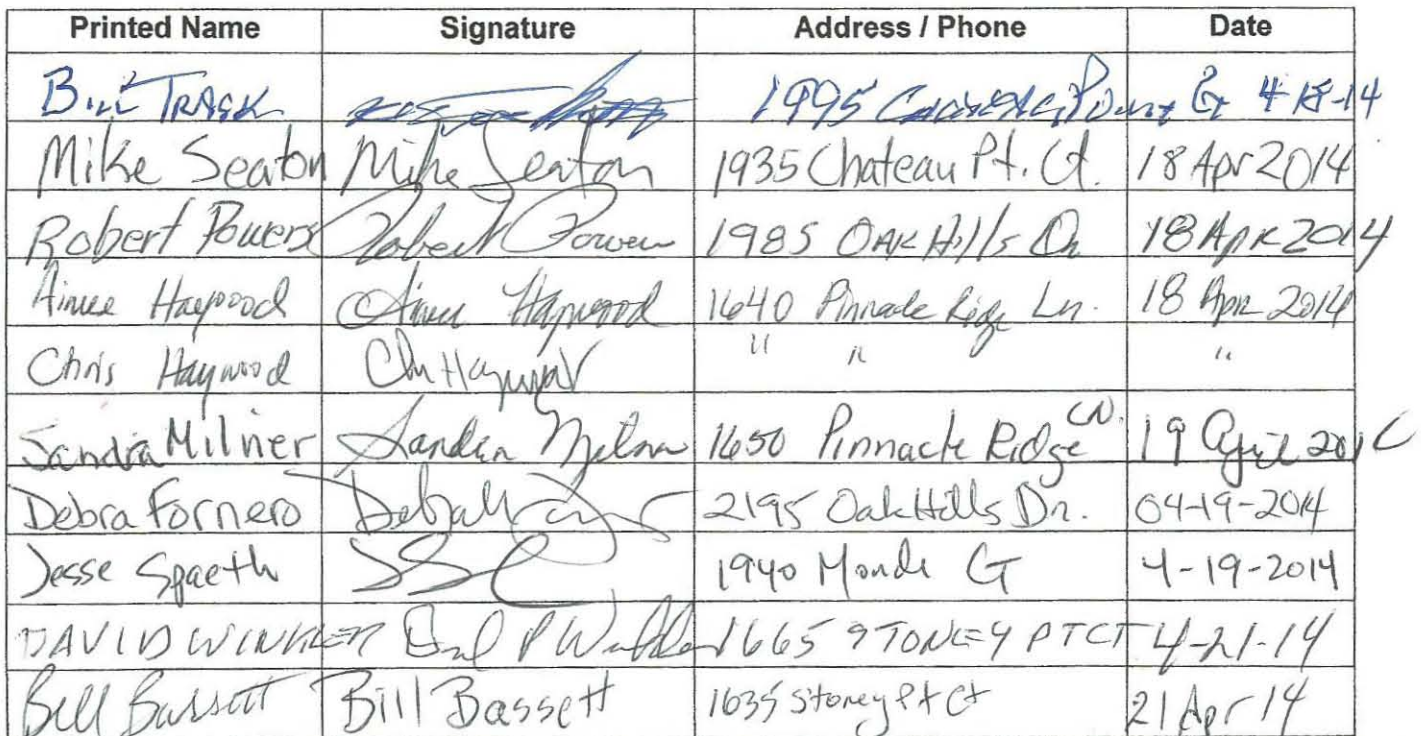 Printed Name Signature Address / Phone Date
Bill Trask 1995 4-18-14
Mike Seaton Mike Seaton 1935 Chateau Pt. Ct. 18 Apr 2014
Robert Powers Robert Powers 1985 Oak Hills Dr 18 Apr 2014
Aimee Haywood Aimee Haywood 1640 Pinnacle Ridge Ln. 18 Apr 2014
Chris Haywood Chr Haywood " " "
Sandra Milner Sandra Milner 1650 Pinnacle Ridge LN. 19 April 2014
Debra Fornero 2195 Oak Hills Dr. 04-19-2014
Jesse Spaeth 1940 Ct 4-19-2014
DAVID WINKLER David P Winkler 1665 STONEY PT CT 4-21-14
Bill Bassett Bill Bassett 1635 Stoney Pt Ct 21 Apr 14